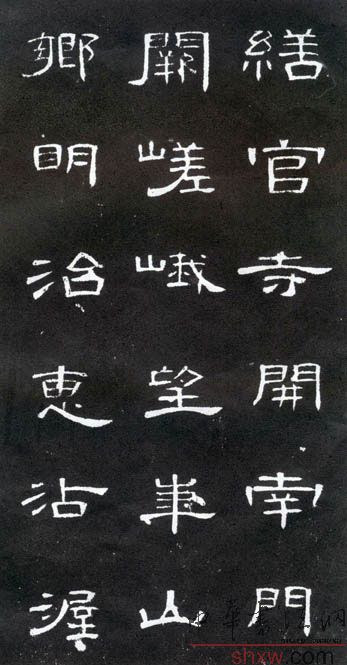 繕官寺開南門
闕嵯峨望華山
鄉明治惠沾渥
中華書法网
shxw.com